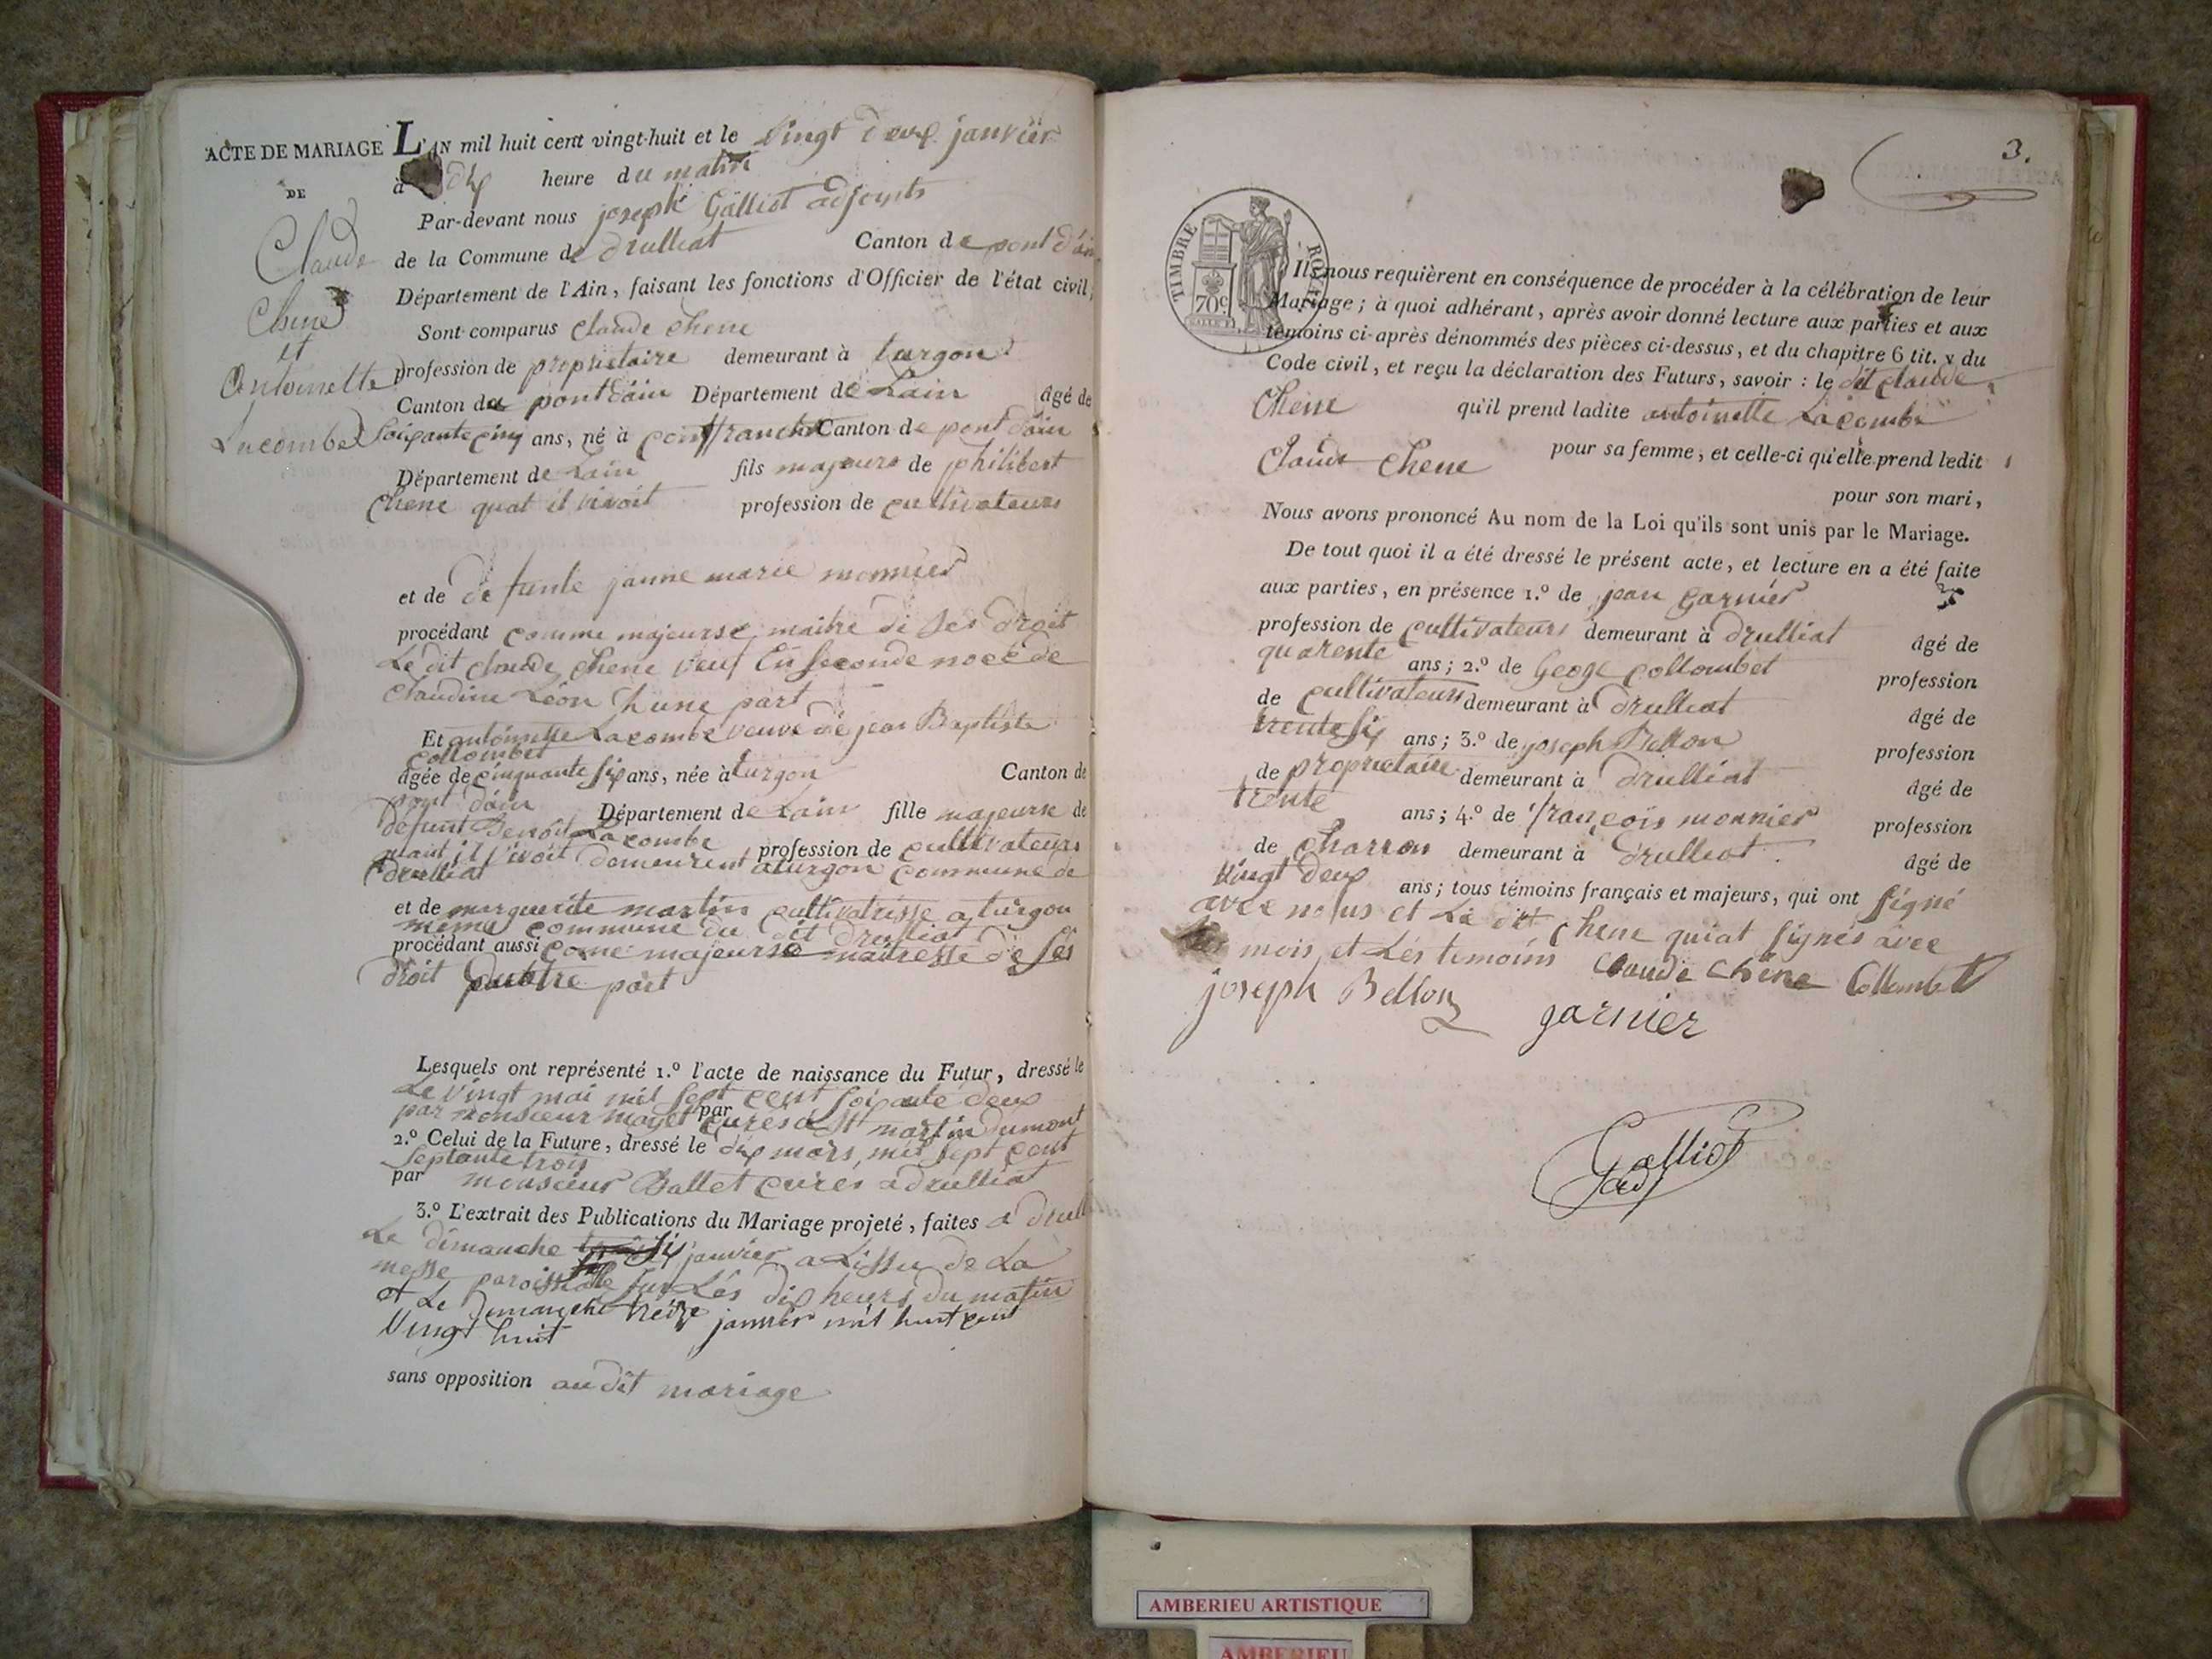 ACTE DE MARIAGE
DE
Claude
Chene
et
Antoinette
Lacombe
L'AN mil huit cent vingt-huit et le vingt deux janvier
à dix heure du matin
Par-devant nous joseph Galliot adjoints
de la Commune de Drulliat Canton de pont d'ain
Département de l'Ain, faisant les fonctions d'Officier de l'état civil,
Sont comparus Claude Chene
profession de propriétaire demeurant à turgon
Canton de pontdain Département de Lain âgé de
Soixante cinq ans, né à Canton de pont dain
Département de Lain fils majeurs de philibert
Chene quat il vivoit profession de cultivateurs
et de defunte janne marie monnier
procédant comme majeurse maitre de ses droit
Le dit claude Chene veuf En Seconde noce de
Claudine Léon Dune part
Et antoinette Lacombe veuve de jean Baptiste
Collombet
âgée de cinquante six ans, née à turgon Canton de
pont dain Département de Lain fille majeurse de
defunt Benoit Lacombe
quant il vivoit demeurent a turgon commune de profession de cultivateurs
Drulliat
et de marguerite martin cultivatrisse a turgon
meme commune du dit Drulliat
procédant aussi come majeurse maitresse de Ses
droit dautre part
Lesquels ont représenté 1.º l'acte de naissance du Futur, dressé le
Le vingt mai mil sept cent soixante deux
par monsieur mayet par curés a St martin Dumont
2.º Celui de la Future, dressé le dix mars, mil sept cent
Septante trois
par monsieur Ballet cures a Drulliat
3.º L'extrait des Publications du Mariage projeté, faites a Drull
Le dimanche six janvier a Lissu de La
messe paroissialle sur Les dix heurs du matin
et Le Dimanche treize janvier mil huit cent
Vingt huit
sans opposition audit mariage
3.
TIMBRE ROYAL
70c
Ils nous requièrent en conséquence de procéder à la célébration de leur
Mariage; à quoi adhérant, après avoir donné lecture aux parties et aux
témoins ci-après dénommés des pièces ci-dessus, et du chapitre 6 tit. v du
Code civil, et reçu la déclaration des Futurs, savoir : le dit claude
Chene qu'il prend ladite antoinette Lacombe
pour sa femme, et celle-ci qu'elle prend ledit
Claude Chene
pour son mari,
Nous avons prononcé Au nom de la Loi qu'ils sont unis par le Mariage.
De tout quoi il a été dressé le présent acte, et lecture en a été faite
aux parties, en présence 1.º de jean Garnier
profession de cultivateurs demeurant à Drulliat âgé de
quarente ans; 2.º de Geoge Collombet profession
de cultivateurs demeurant à Drulliat âgé de
trente six ans; 3.º de joseph Bellon profession
de propriétaire demeurant à Drulliat âgé de
trente ans; 4.º de françois monnier profession
de Charron demeurant à Drulliat âgé de
Vingt deux ans; tous témoins français et majeurs, qui ont signé
avec nous et Le dit Chene quiat signés avec
mois, et Les temoins Claude Chene Collombet
joseph Bellon garnier
Galliot
adj
AMBERIEU ARTISTIQUE
AMBERIEU